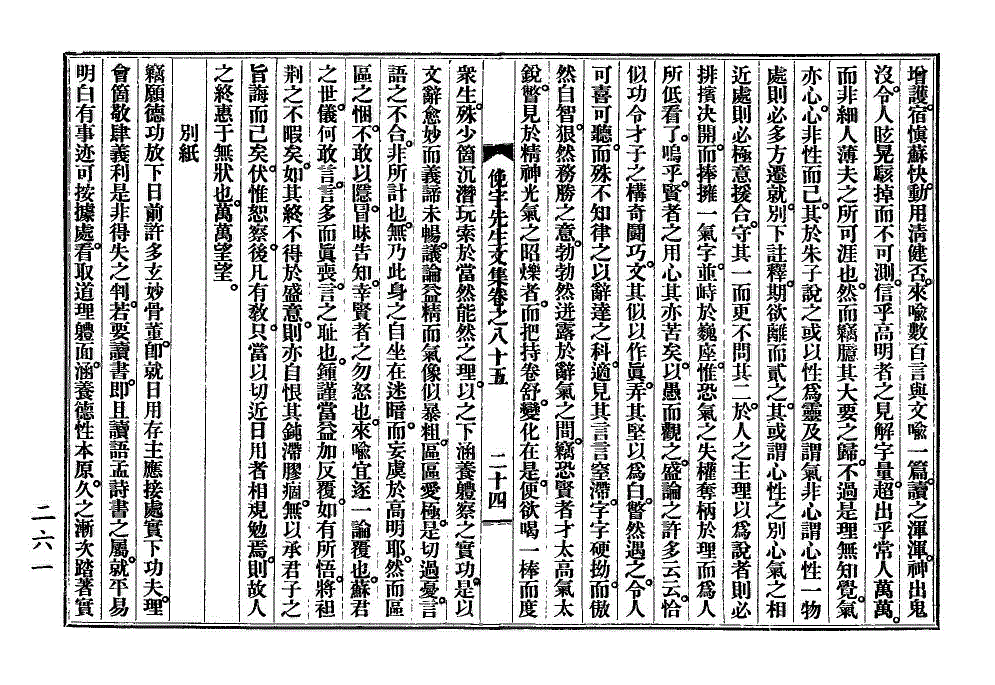 增護。宿愼蘇快。動用淸健否。來喩數百言與文喩一篇。讀之渾渾。神出鬼
沒。令人眩晃駭掉而不可測。信乎高明者之見解字量。超出乎常人萬萬。
而非細人薄夫之所可涯也。然而竊臆其大要之歸。不過是理無知覺。氣
亦心。心非性而已。其於朱子說之或以性爲靈及謂氣非心謂心性一物
處則必多方遷就。別下註釋。期欲離而貳之。其或謂心性之別心氣之相
近處則必極意援合。守其一而更不問其二。於人之主理以爲說者則必
排擯決開。而捧擁一氣字。並峙於巍座。惟恐氣之失權奪柄於理而爲人
所低看了。嗚乎。賢者之用心其亦苦矣。以愚而觀之。盛論之許多云云。恰
似功令才子之構奇鬪巧。文其似以作眞。弄其堅以爲白。瞥然遇之。令人
可喜可聽。而殊不知律之以辭達之科。適見其言言窒滯。字字硬拗。而傲
然自智。狠然務勝之意。勃勃然迸露於辭氣之間。竊恐賢者才太高氣太
銳。瞥見於精神光氣之昭爍者。而把持卷舒。變化在是。便欲喝一棒而度
俛宇先生文集卷之八十五 二十四
衆生。殊少箇沉潛玩索於當然能然之理。以之下涵養體察之實功。是以
文辭愈妙而義諦未暢。議論益精而氣像似暴粗。區區愛極。是切過憂。言
語之不合。非所計也。無乃此身之自坐在迷暗。而妄虞於高明耶。然而區
區之悃。不敢以隱。冒昧告知。幸賢者之勿怒也。來喩宜逐一論覆也。蘇君
之世儀何敢言。言多而眞喪。言之恥也。鍾謹當益加反覆。如有所悟。將袒
荆之不暇矣。如其終不得於盛意。則亦自恨其鈍滯膠痼。無以承君子之
旨誨而已矣。伏惟恕察。後凡有敎。只當以切近日用者相規勉焉。則故人
之終惠于無狀也。萬萬望望。
別紙
竊願德功放下日前許多玄妙骨董。卽就日用存主應接處。實下功夫。理
會箇敬肆義利是非得失之判。若要讀書。即且讀語孟詩書之屬。就平易
明白有事迹可按據處。看取道理體面。涵養德性本原。久之漸次踏著實
二六一